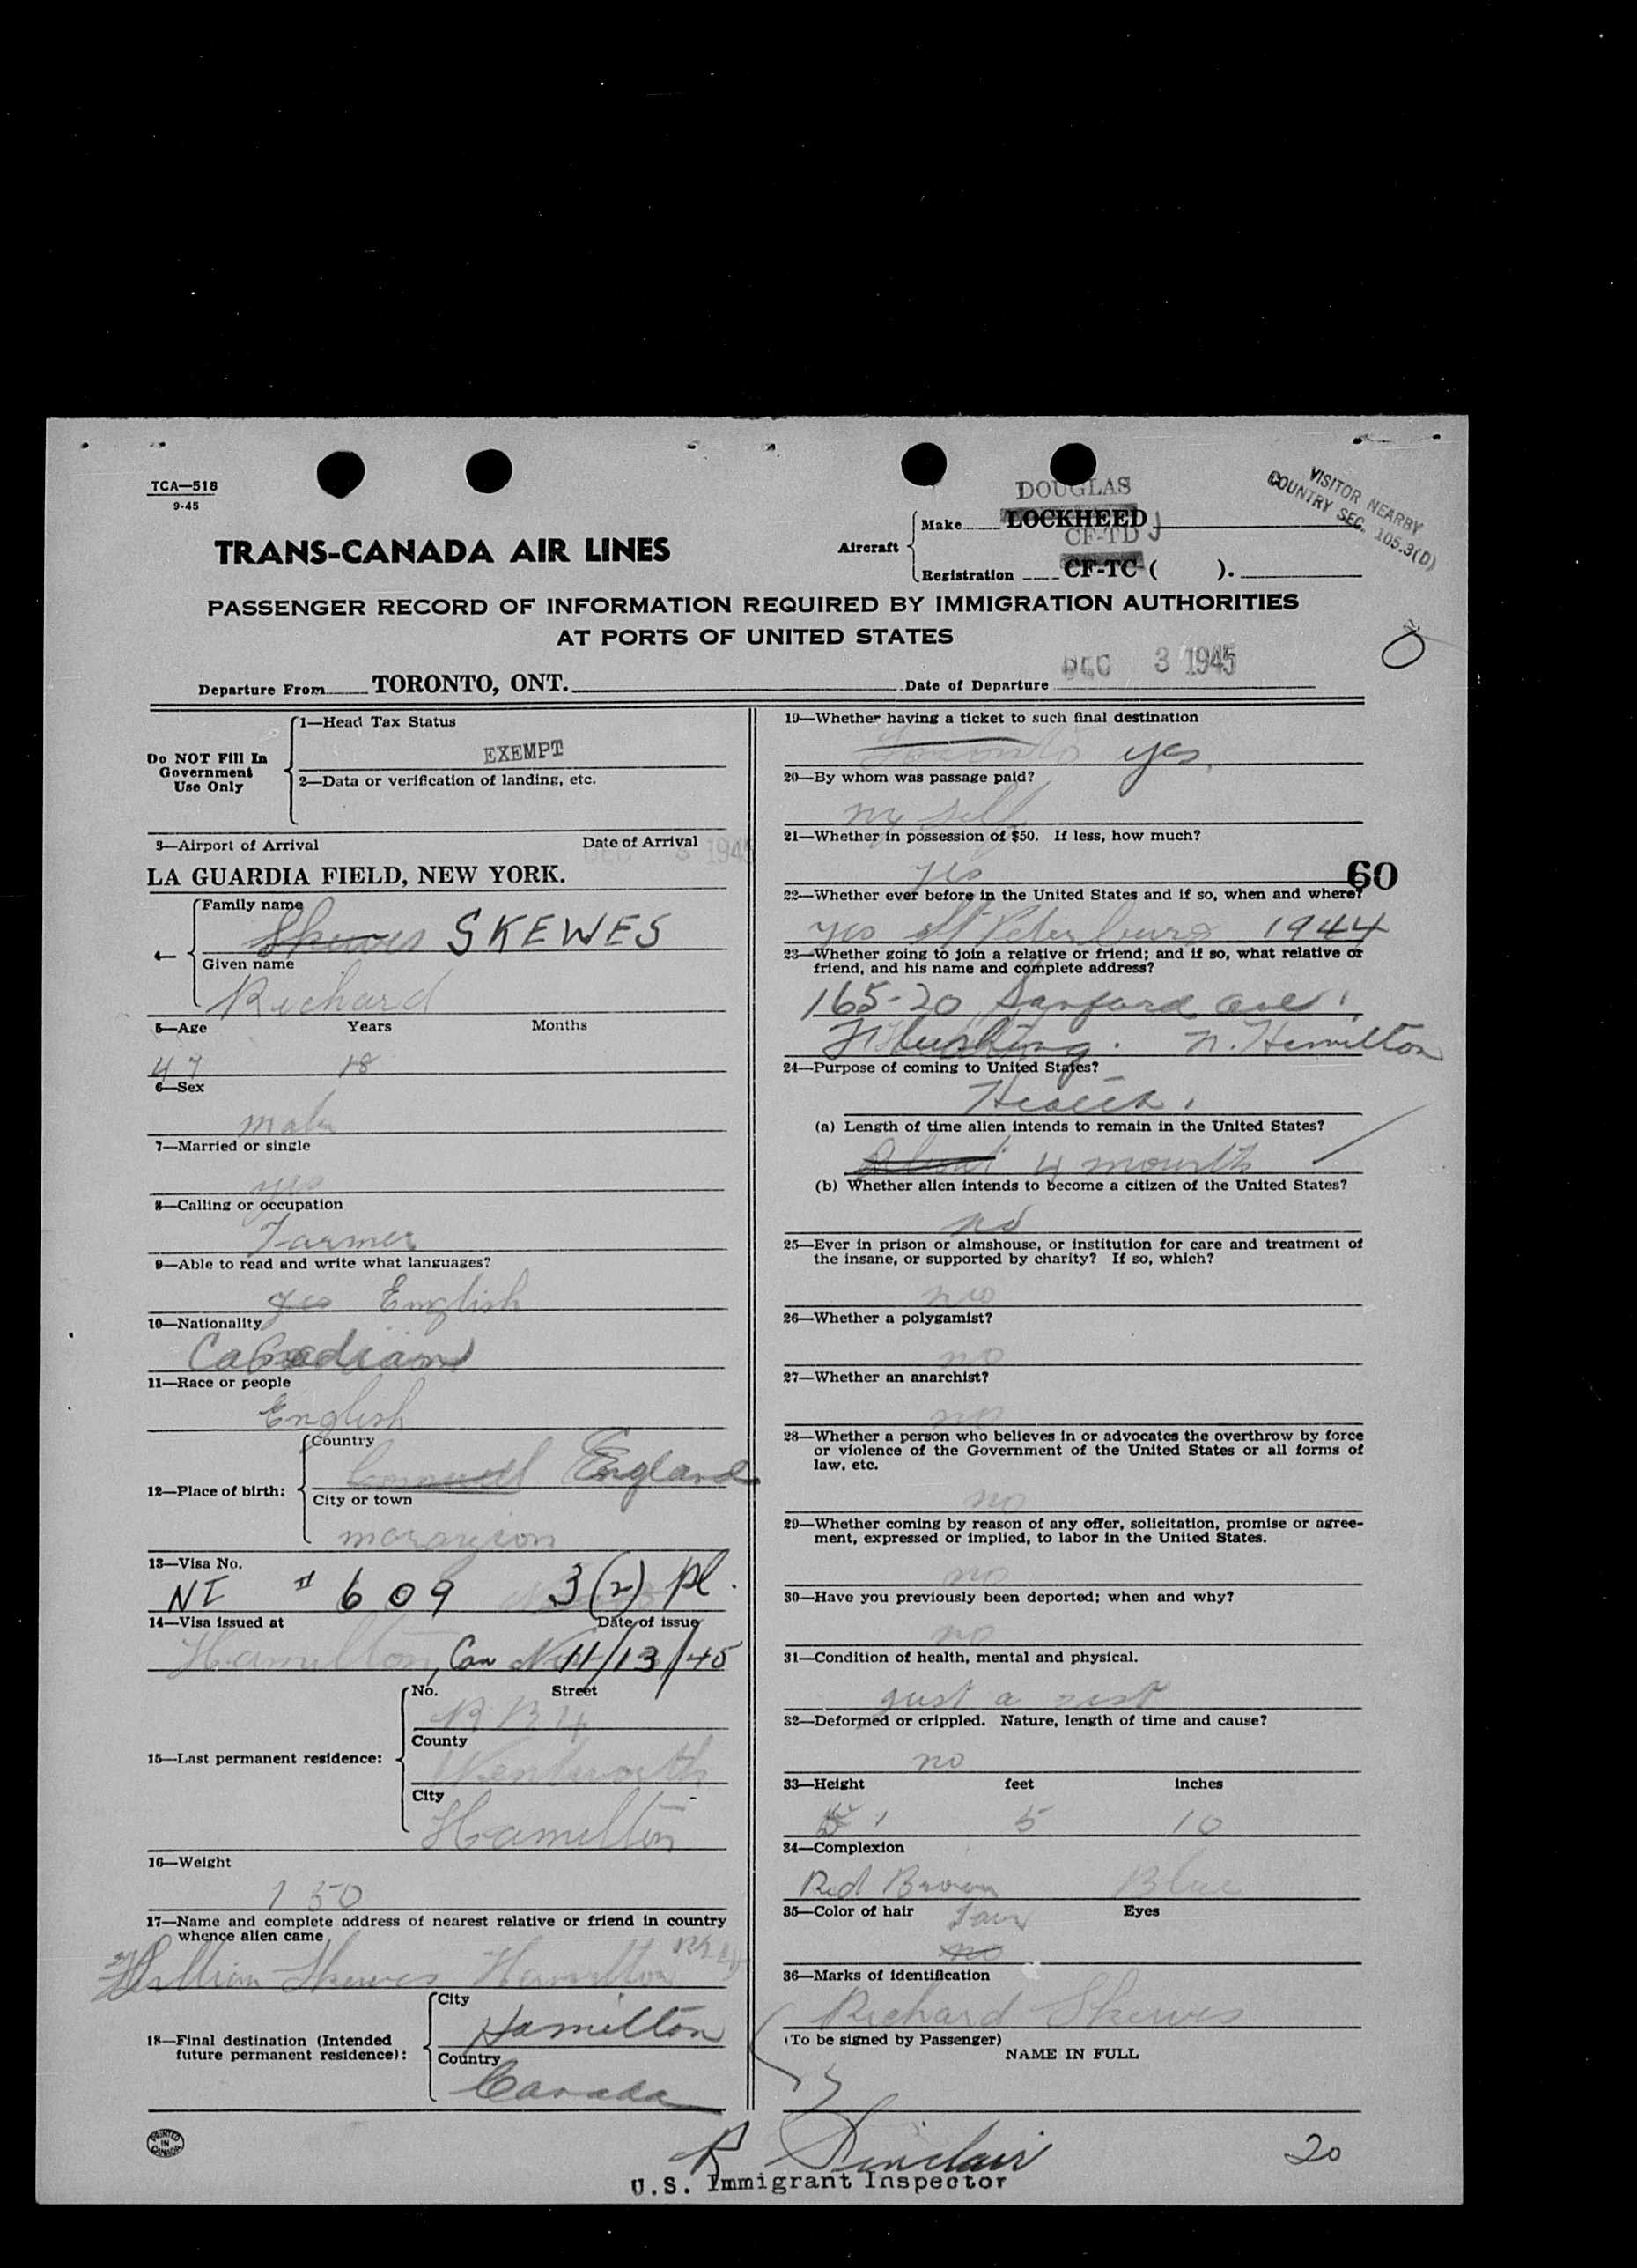 TCA—518
9-45
VISITOR NEARBY
COUNTRY SEC. 105.3(D)
TRANS-CANADA AIR LINES
DOUGLAS
Aircraft
Make LOCKHEED
CF-TD J
Registration CF-TC ( ).
PASSENGER RECORD OF INFORMATION REQUIRED BY IMMIGRATION AUTHORITIES
AT PORTS OF UNITED STATES
Departure From TORONTO, ONT. Date of Departure DEC 3 1945
Do NOT Fill In Government Use Only
1—Head Tax Status
EXEMPT
2—Data or verification of landing, etc.
3—Airport of Arrival Date of Arrival
DEC 3 1945
LA GUARDIA FIELD, NEW YORK.
4—
Family name
Skewes SKEWES
Given name
Richard
5—Age Years Months
47 18
6—Sex
male
7—Married or single
yes
8—Calling or occupation
Farmer
9—Able to read and write what languages?
yes English
10—Nationality
Canadian
11—Race or people
English
12—Place of birth:
Country
Cornwall England
City or town
marazion
13—Visa No.
NI # 609 3(2) pl.
14—Visa issued at Date of issue
Hamilton, Can 11/13/45
15—Last permanent residence:
No. Street
County
Wentworth
City
Hamilton
16—Weight
150
17—Name and complete address of nearest relative or friend in country
whence alien came
William Skewes Hamilton
18—Final destination (Intended
future permanent residence):
City
Hamilton
Country
Canada
PRINTED IN CANADA
19—Whether having a ticket to such final destination
Toronto yes
20—By whom was passage paid?
my self
21—Whether in possession of $50. If less, how much?
yes
60
22—Whether ever before in the United States and if so, when and where?
yes St Petersburg 1944
23—Whether going to join a relative or friend; and if so, what relative or
friend, and his name and complete address?
165-20 Sanford ave.
Flushing. N. Hamilton
24—Purpose of coming to United States?
Health.
(a) Length of time alien intends to remain in the United States?
About 4 mounth
(b) Whether alien intends to become a citizen of the United States?
no
25—Ever in prison or almshouse, or institution for care and treatment of
the insane, or supported by charity? If so, which?
no
26—Whether a polygamist?
no
27—Whether an anarchist?
no
28—Whether a person who believes in or advocates the overthrow by force
or violence of the Government of the United States or all forms of
law, etc.
no
29—Whether coming by reason of any offer, solicitation, promise or agree-
ment, expressed or implied, to labor in the United States.
no
30—Have you previously been deported; when and why?
no
31—Condition of health, mental and physical.
just a rest
32—Deformed or crippled. Nature, length of time and cause?
no
33—Height feet inches
5 10
34—Complexion
Red Brown Blue
35—Color of hair Fair Eyes
no
36—Marks of identification
Richard Skewes
(To be signed by Passenger)
NAME IN FULL
R Sinclair
U.S. Immigrant Inspector
20